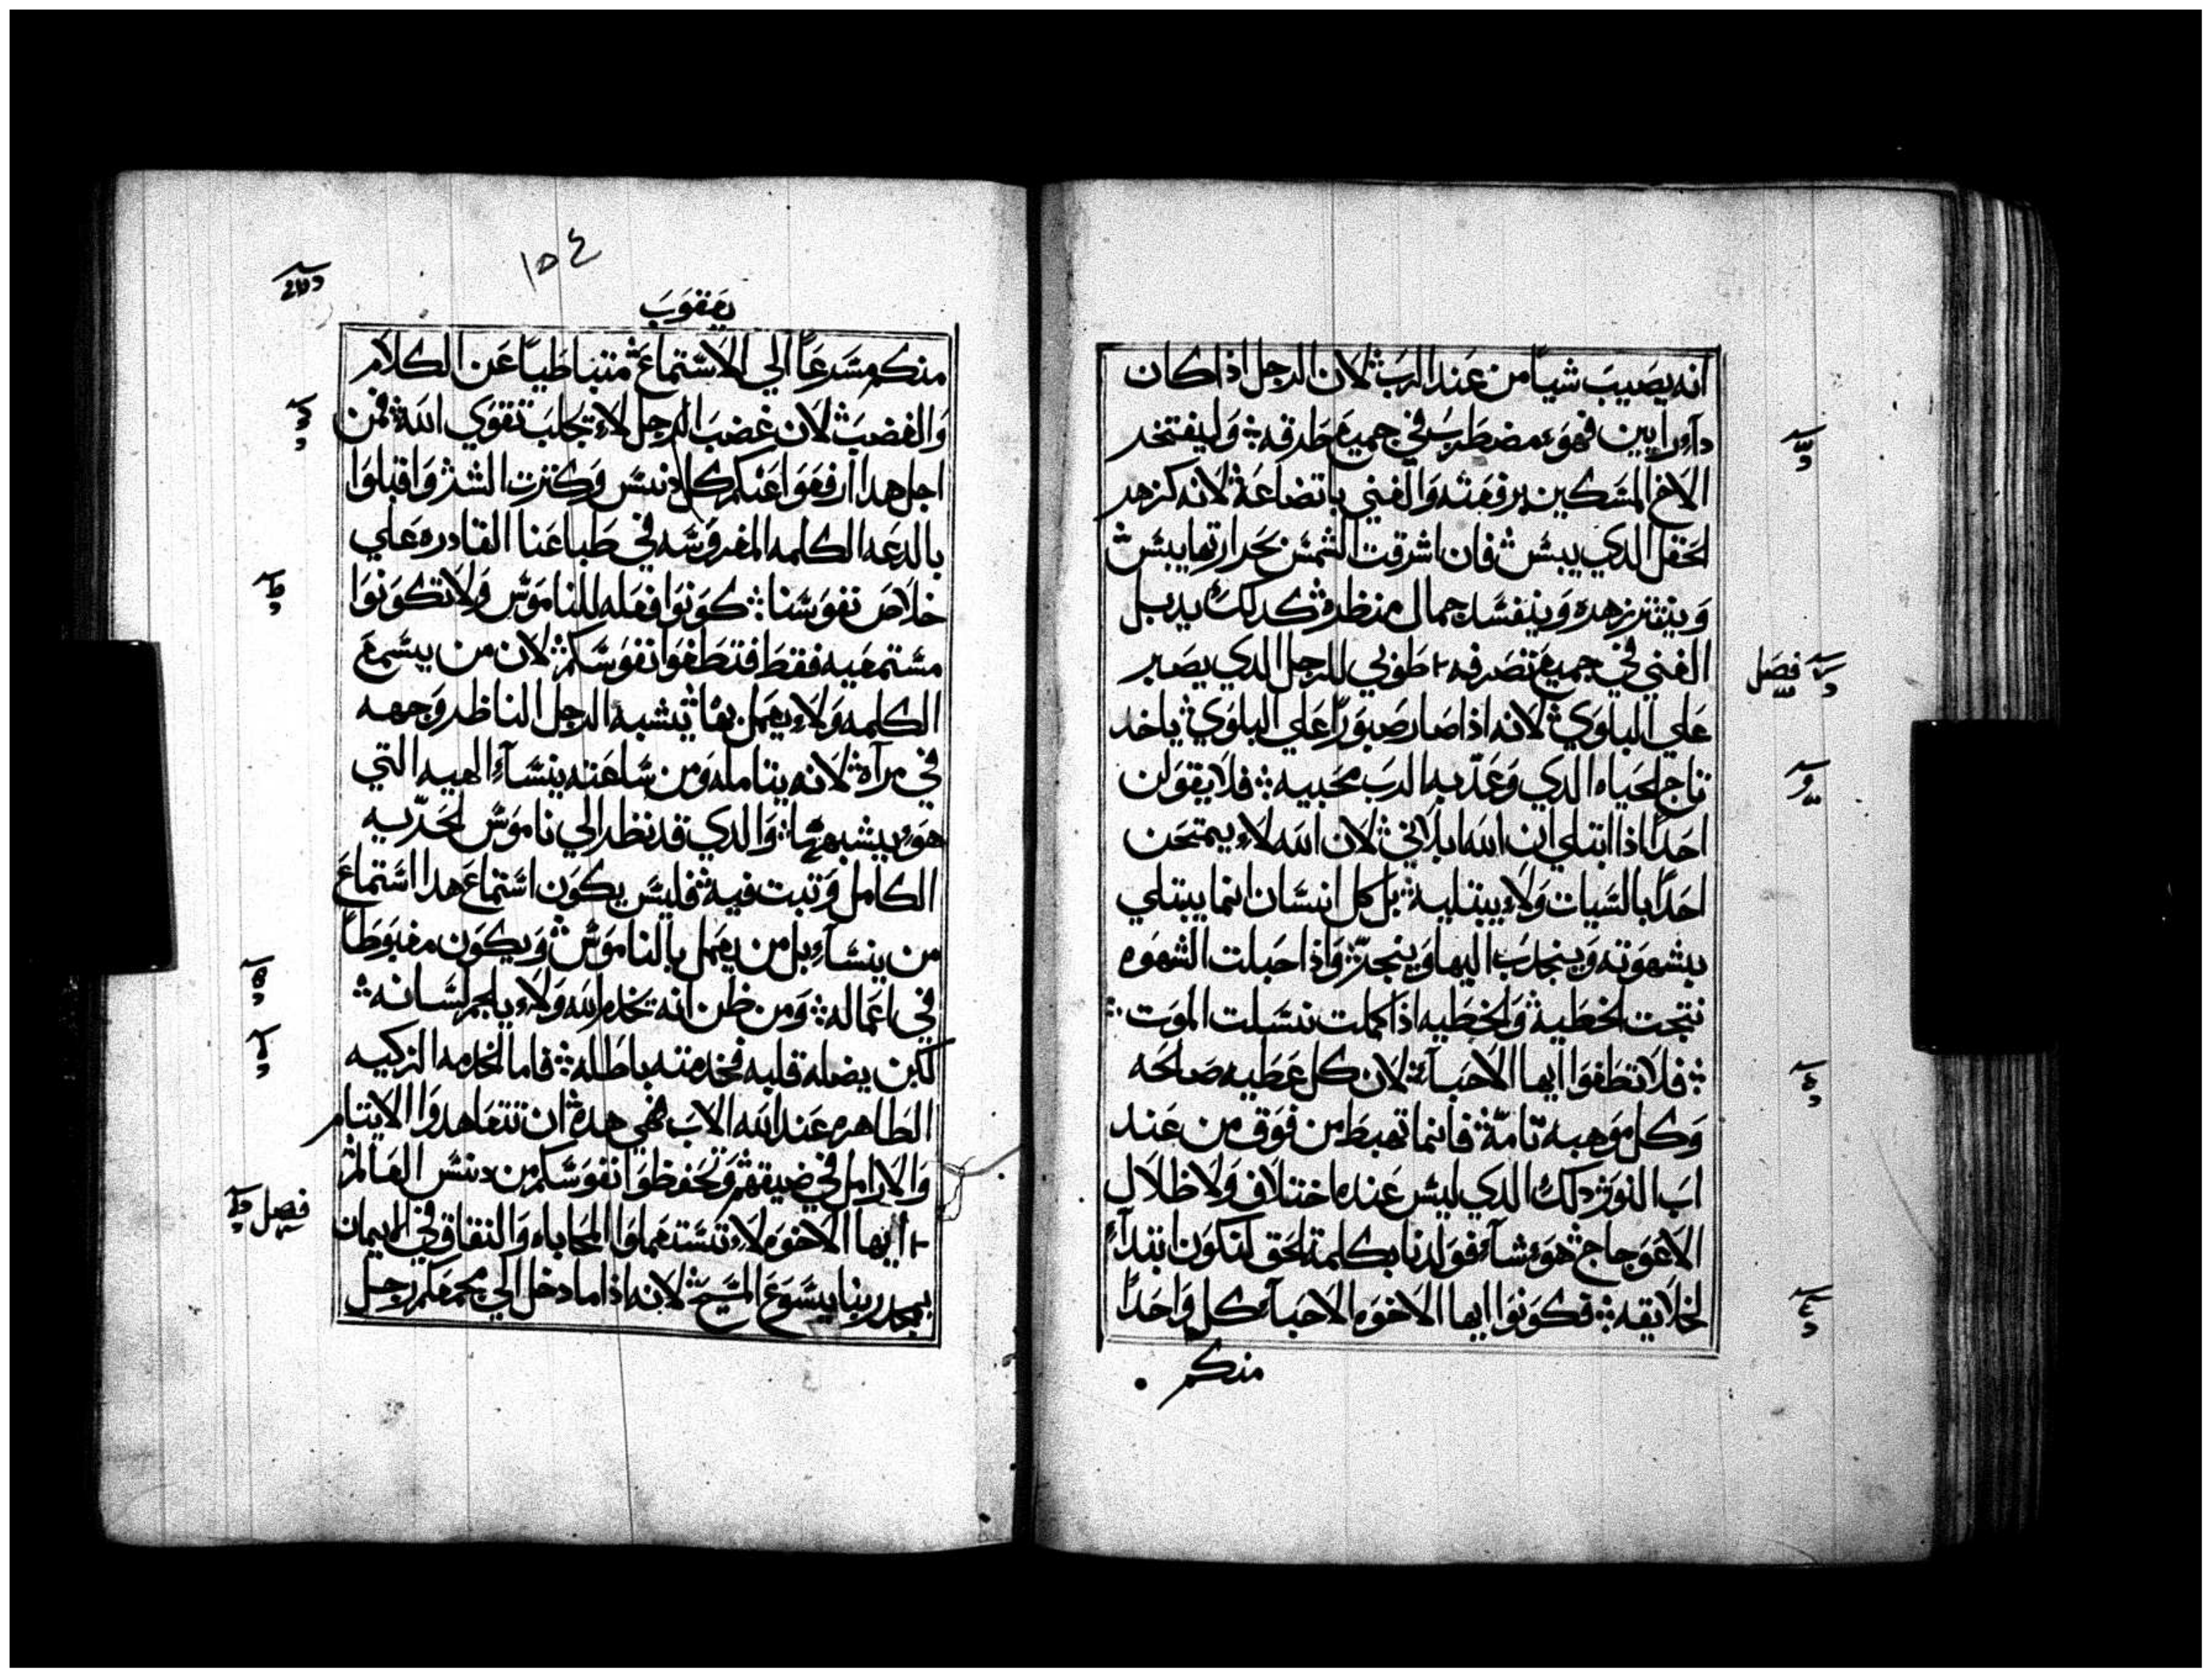 انه يصيب شيا من عند الرب لان الرجل اذا كان
دآ رايين فهو مضطرب في جميع طرقه وليفتخر
الاخ المسكين برفعته والغني باتضاعه لانه كزهر
الحقل الدي ييبس فان اشرقت الشمس بحرارتها يبس
وينتتر زهره وينفسد جمال منظره كدلك يدبل
الغني في جميع تصرفه طوبي للرجل الدي يصبر
فصل
علي البلوي لانه اذا صار صبورا علي البلوي ياخد
تاج الحياه الدي وعد به الرب محبيه فلا يقولن
احدا اذا ابتلي ان الله ابلاني لان الله لا يمتحن
احدا بالسيات ولا يبتليه بل كل انسان انما يبتلي
بشهوته وينجدب اليها وينجر واذا حبلت الشهوه
نتجت الخطيه والخطيه اذا كملت نسلت الموت
فلا تطغوا ايها الاحبآء لان كل عطيه صالحه
وكل موهبه تامة فانما تهبط من فوق من عند
اب النور دلك الدي ليس عنده اختلاف ولا ظلال
الاعوجاج هو شآء فولدنا بكلمة الحق لنكون ابتدآء
لخلايقه فكونوا ايها الاخوه الاحبآء كل واحدا
منكم
١٥٤
يعقوب
منكم مسرعا الي الاستماع متباطيا عن الكلام
والغضب لان غضب الرجل لا يجلب تقوي الله فمن
اجل هدا ارفعوا عنكم كل دنس وكترت الشر واقبلوا
بالدعه الكلمه المغروسه في طباعنا القادره علي
خلاص نفوسنا كونوا فعله للناموس ولا تكونوا
مستمعيه فقط فتطغوا نفوسكم لان من يسمع
الكلمه ولا يعمل بها يشبه الرجل الناظر وجهه
في مرآه لانه يتامله ومن ساعته ينسآ الهيه التي
هو يشبهها والدي قد نظر الي ناموس الحريه
الكامل وتبت فيه فليس يكون استماع هدا استماع
من ينسآ بل من يعمل بالناموس ويكون مغبوطا
في اعماله ومن ظن انه يخدم الله ولا يلجم لسانه
لكن يضله قلبه فخدمته باطله فاما الخدمه الزكيه
الطاهره عند الله الاب فهي هده ان تتعاهدوا الايتام
والارامل في ضيقهم وتحفظوا نفوسكم من دنس العالم
فصل
ايها الاخوه لا تستعملوا المحاباه والنفاق في الايمان
بمجد ربنا يسوع المسيح لانه اذا ما دخل الي مجمعكم رجل